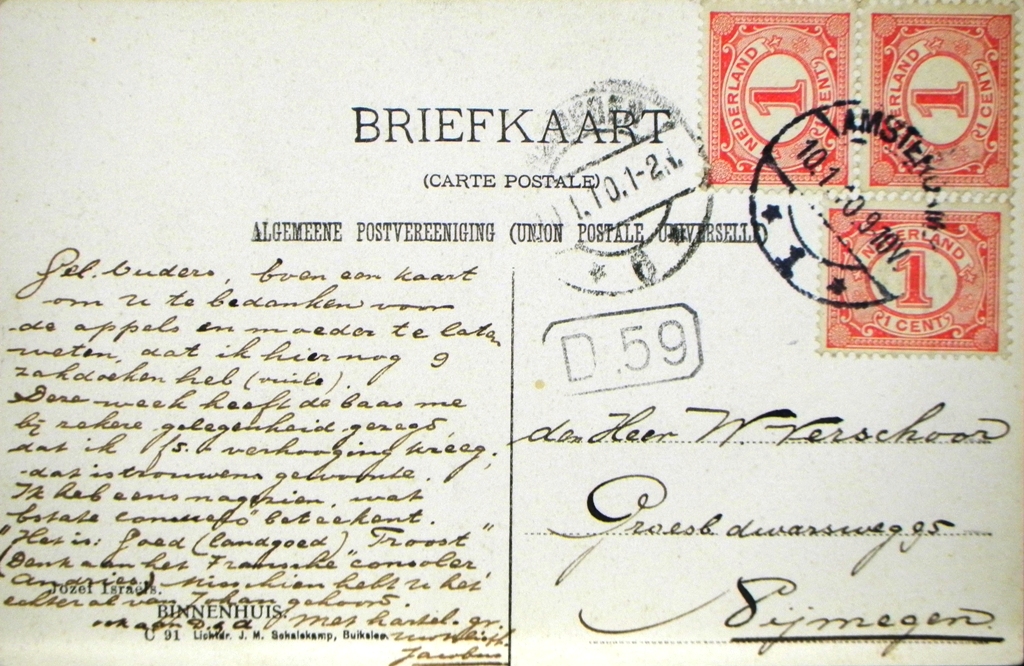 BRIEFKAART
(CARTE POSTALE)
ALGEMEENE POSTVEREENIGING (UNION POSTALE UNIVERSELLE)
NEDERLAND
1
1 CENT
NEDERLAND
1
1 CENT
NEDERLAND
1
1 CENT
AMSTERDAM
10.1.10.9-10V.
1
1.10.1-2.N.
D.59
Gel. Ouders, Even een kaart
om u te bedanken voor
de appels en moeder te laten
weten, dat ik hier nog 9
zakdoeken heb (vuile).
Deze week heeft de baas me
bij zekere gelegenheid gezegd,
dat ik f5.- verhooging kreeg,
dat is trouwens gewoonte.
Ik heb eens nagezien, wat
beteekent.
"Het is: Goed (landgoed) Troost"
Denk aan het Fransche "consoler"
Andries, Misschien hebt u het
echter al van Johan gehoord.
ook aan D. Met hartel. gr.
Jacobus
Jozef Israëls.
BINNENHUIS.
U 91 Lichtdr. J. M. Schalekamp, Buiksloot
den Heer W. Verschoor
Groesb dwarsweg 95
Nijmegen.